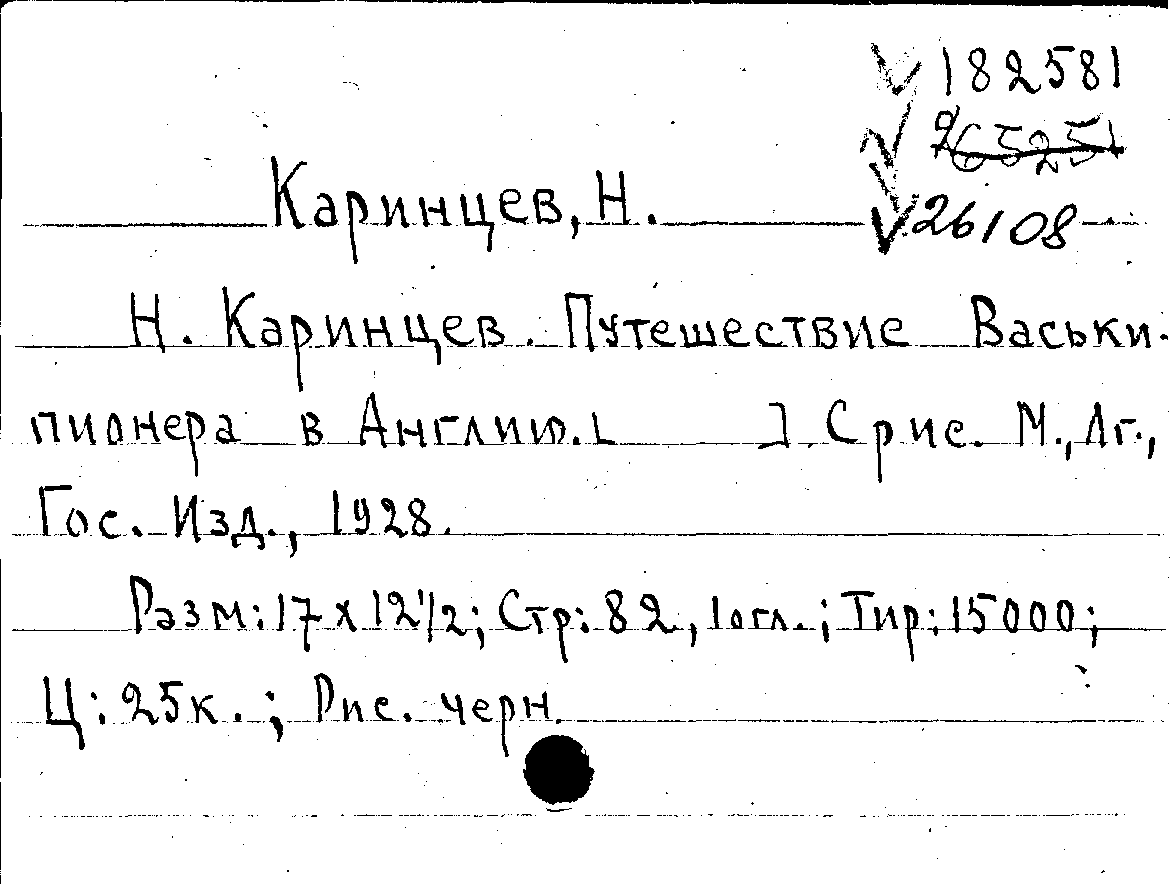 182581
265251
Каринцев, Н.
26108
Н. Каринцев. Путешествие Васьки-
пионера в Англию. [ ]. С рис. М., Лг.,
Гос. Изд., 1928.
Разм: 17 x 12 1/2; Стр: 82, 1 огл.; Тир: 15000;
Ц: 25к.; Рис. черн.